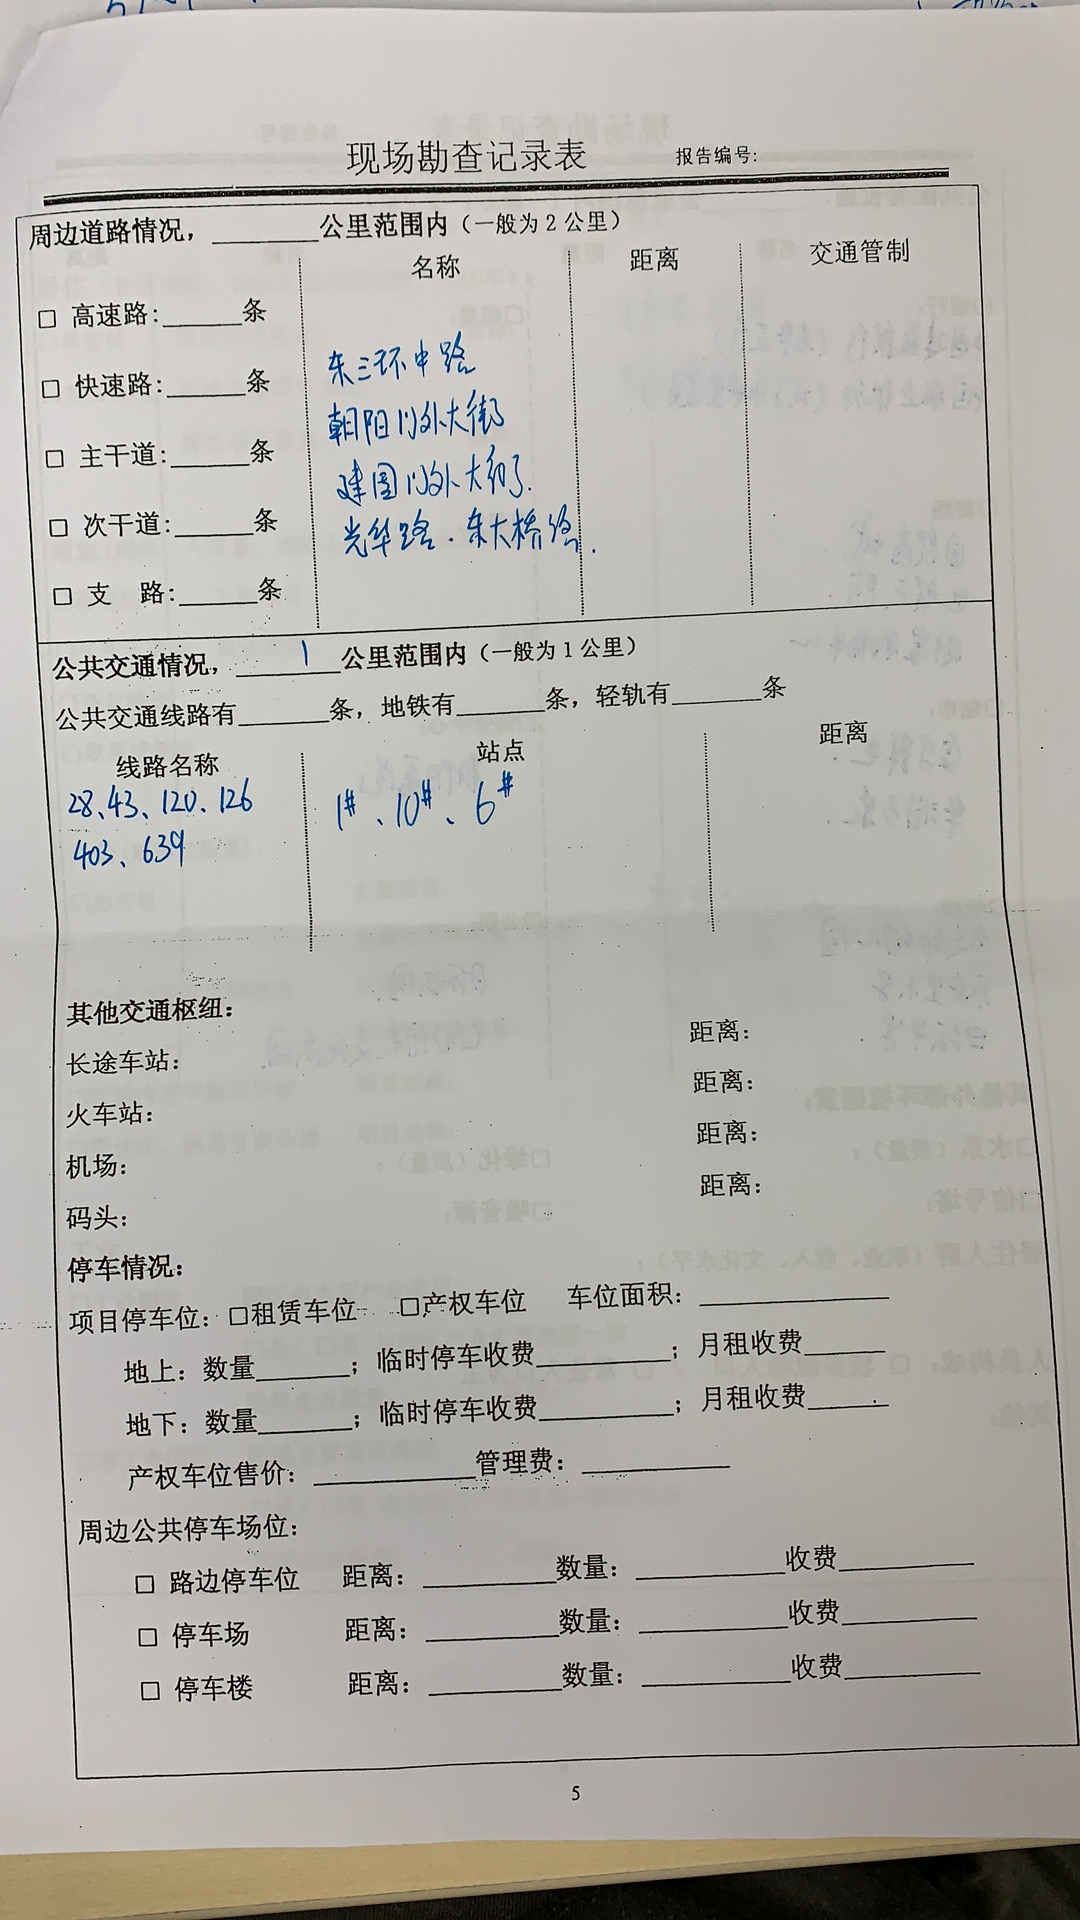 现场勘查记录表 报告编号:
周边道路情况，________公里范围内（一般为2公里）
名称 距离 交通管制
□ 高速路:______条
□ 快速路:______条 东三环中路
□ 主干道:______条 朝阳门外大街
□ 次干道:______条 建国门外大街.
□ 支 路:______条 光华路.东大桥路.
公共交通情况，____1____公里范围内（一般为1公里）
公共交通线路有_______条，地铁有_______条，轻轨有_______条
线路名称 站点 距离
28、43、120、126 1#、10#、6#
403、639
其他交通枢纽：
长途车站： 距离：
火车站： 距离：
机场： 距离：
码头： 距离：
停车情况：
项目停车位：□租赁车位 □产权车位 车位面积：______________
地上：数量_______；临时停车收费__________；月租收费______
地下：数量_______；临时停车收费__________；月租收费______
产权车位售价：____________管理费：___________
周边公共停车场位：
□ 路边停车位 距离：__________数量：___________收费__________
□ 停车场 距离：__________数量：___________收费__________
□ 停车楼 距离：__________数量：___________收费__________
5